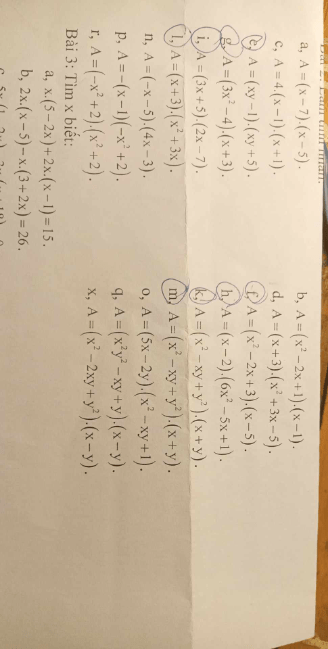 a, A = (x − 7).(x − 5). b, A = (x² − 2x + 1).(x − 1).
c, A = 4.(x − 1).(x + 1). d, A = (x + 3).(x² + 3x − 5).
e, A = (xy − 1).(xy + 5). f, A = (x² − 2x + 3).(x − 5).
g, A = (3x² − 4).(x + 3). h, A = (x − 2).(6x² − 5x + 1).
i, A = (3x + 5).(2x − 7). k, A = (x² − xy + y²).(x + y).
l, A = (x + 3).(x² + 3x). m, A = (x² − xy + y²).(x + y).
n, A = (−x − 5).(4x − 3). o, A = (5x − 2y).(x² − xy + 1).
p, A = −(x − 1)(−x² + 2). q, A = (x²y² − xy + y).(x − y).
r, A = (−x² + 2).(x² + 2). x, A = (x² − 2xy + y²).(x − y).
Bài 3: Tìm x biết:
a, x.(5 − 2x) + 2x.(x − 1) = 15.
b, 2x.(x − 5) − x.(3 + 2x) = 26.